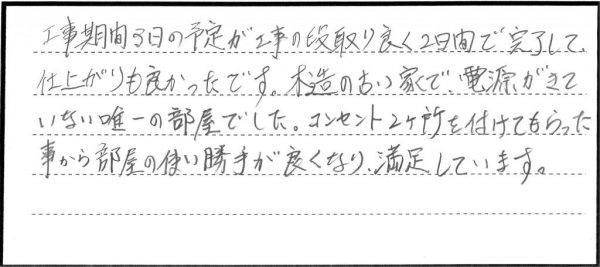 工事期間3日の予定が工事の段取り良く2日間で完了して、
仕上がりも良かったです。木造の古い家で、電源がきて
いない唯一の部屋でした。コンセント2ヶ所を付けてもらった
事から部屋の使い勝手が良くなり、満足しています。